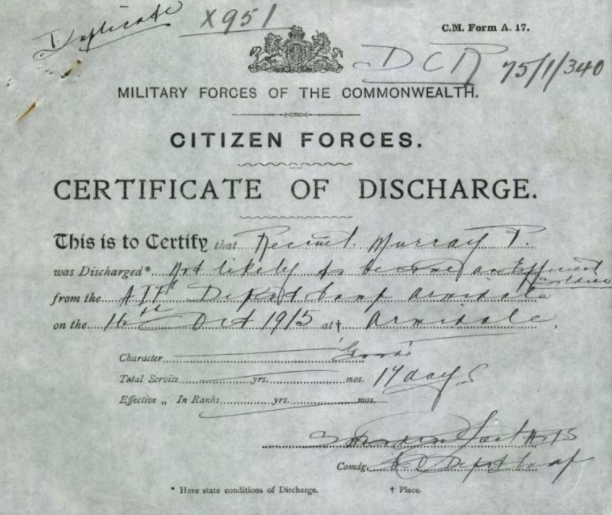 Duplicate X951
C.M. Form A. 17.
DCR 75/1/340
MILITARY FORCES OF THE COMMONWEALTH.
CITIZEN FORCES.
CERTIFICATE OF DISCHARGE.
This is to Certify that Recruit. Murray P.
was Discharged* Not likely to become an Efficient Soldier
from the A.I.F. Depot Camp Armidale
on the 16th Oct 1915 at† Armidale.
Character "Good"
Total Service yrs. mos. 17 days
Effective „ In Ranks yrs. mos.
Comdg. Depot Camp
* Here state conditions of Discharge. † Place.